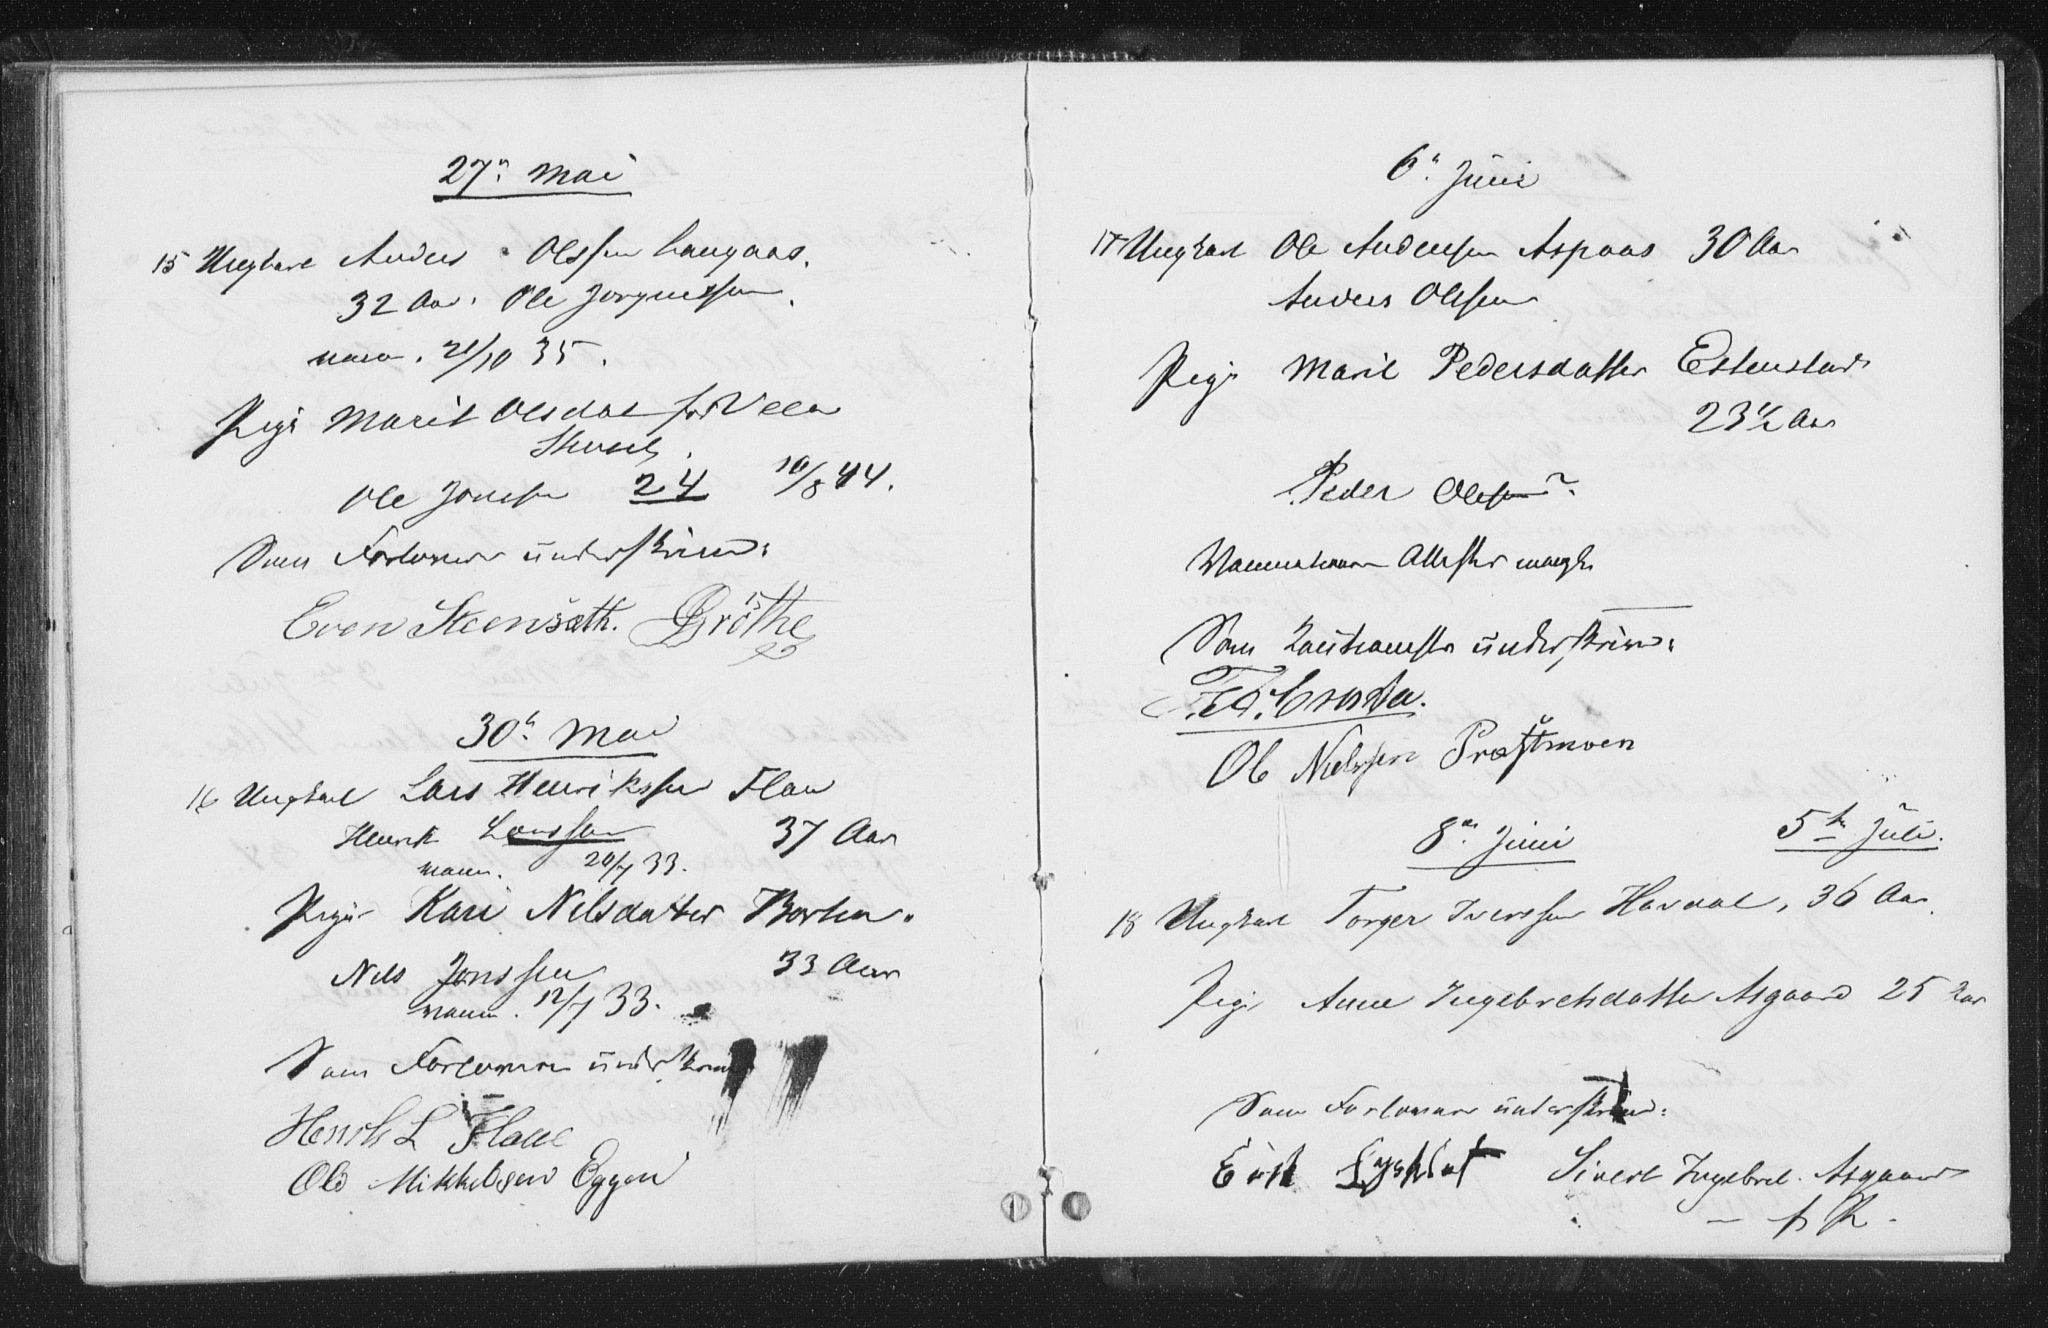 27n Mai
15 Ungkarl Anders Olssen Langaas.
32 Aar. Ole Jørgenssen.
vacc. 21/10 35.
Pige Marit Olsdat
Ole Jonssen 24 10/8 44.
Som Forlovere underskrive:
Even Steensæth. Grøthe
30n Mai
16 Ungkarl Lars Henrikssen Flaa
Henrik Larssen 37 Aar
vacc. 20/7 33.
Pige Kari Nilsdatter Borten.
Nils Jonssen 33 Aar
vacc. 12/7 33.
Som Forlovere underskrive
Henrik L Flaae
Ole Mikkelsen Eggen
6n Juni
17 Ungkarl Ole Anderssen Aspaas 30 Aar
Anders Olssen
Pige Marit Pedersdatter Estenstad
23 1/2 Aar
Peder Olessen?
Vaccinations Attester mangle
Som Kautionister underskrive:
Ole Nielssen Præstmoen
8de Juni 5te Juli.
18 Ungkarl Torger Iverssen Havdal, 36 Aar.
Pige Anne Ingebretsdatter Asgaard 25 Aar
Som Forlovere underskrive:
Erik Sivert Ingebret. Asgaard